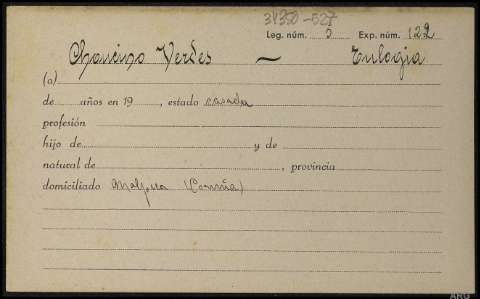 34350-527
Leg. núm. 3 Exp. núm. 122
Chouciño Verdes — Eulogia
(a)
de años en 19 , estado casada
profesión
hijo de y de
natural de , provincia
domiciliado Malpica (Coruña)